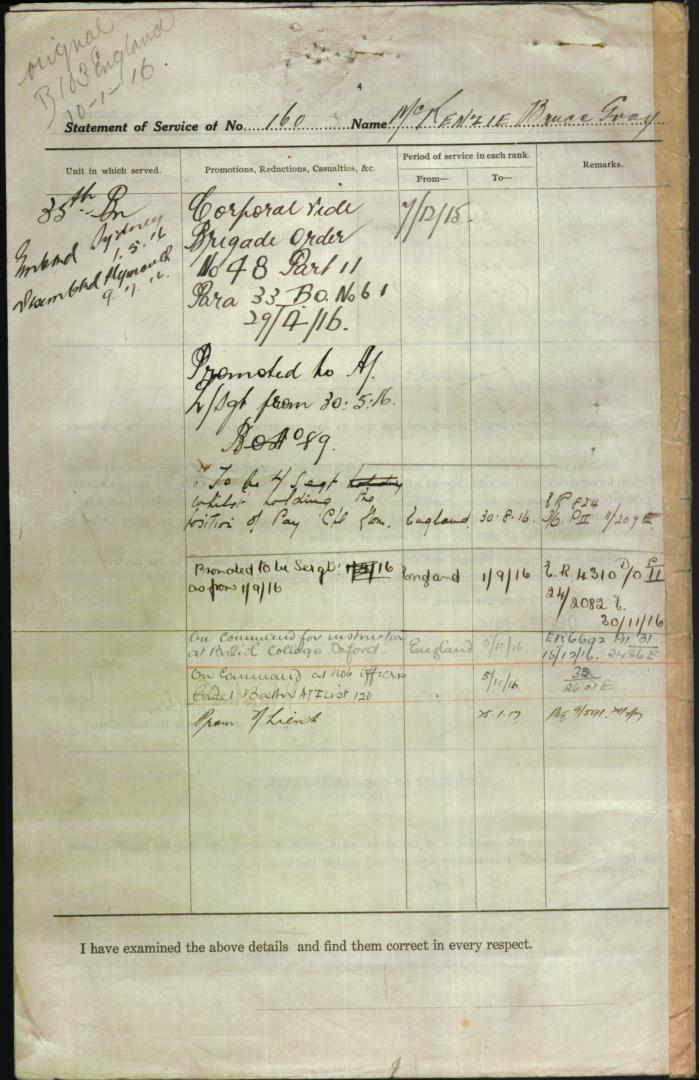 original
B103 England
10-1-16.
4
Statement of Service of No. 160 Name McKENZIE Bruce Gray
Unit in which served.
Promotions, Reductions, Casualties, &c.
Period of service in each rank.
From—
To—
Remarks.
35th Bn
Embkd Sydney
1.5.16
Disembkd Plymouth
9.7.16.
Corporal vide
Brigade Order
No 48 Part 11
Para 33 B.O. No 61
29/4/16.
7/12/15.
Promoted to A/
L/Sgt from 30.5.16.
89.
To be L/Sergt holding
whilst holding the
position of Pay
England 30.8.16.
824
11/207 E
Promoted to be Sergt. 16
as from 1/9/16
England
1/9/16
E.R. 4310 D/O P II
24/2082 E.
30/11/16
On command for instruction
at Balliol College Oxford.
England
5/11/16
ER6692 Pt 31
15/12/16. 2486 E
On Command at No 6 Officers
Cadet Battn A/F List 120
5/11/16
32
2601 E
Prom 2/Lieut
25.1.17
I have examined the above details and find them correct in every respect.